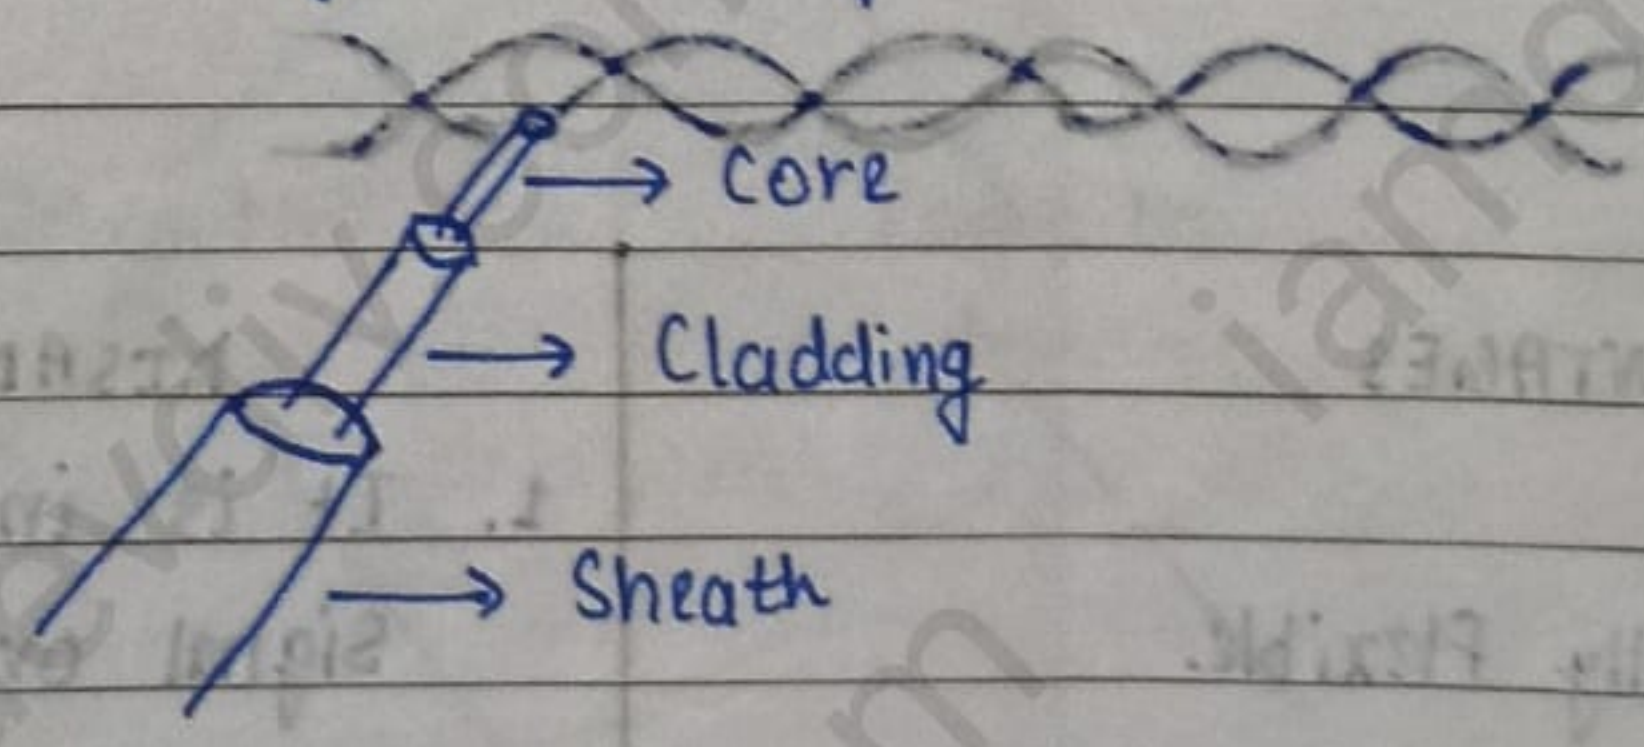 Core
Cladding
Sheath